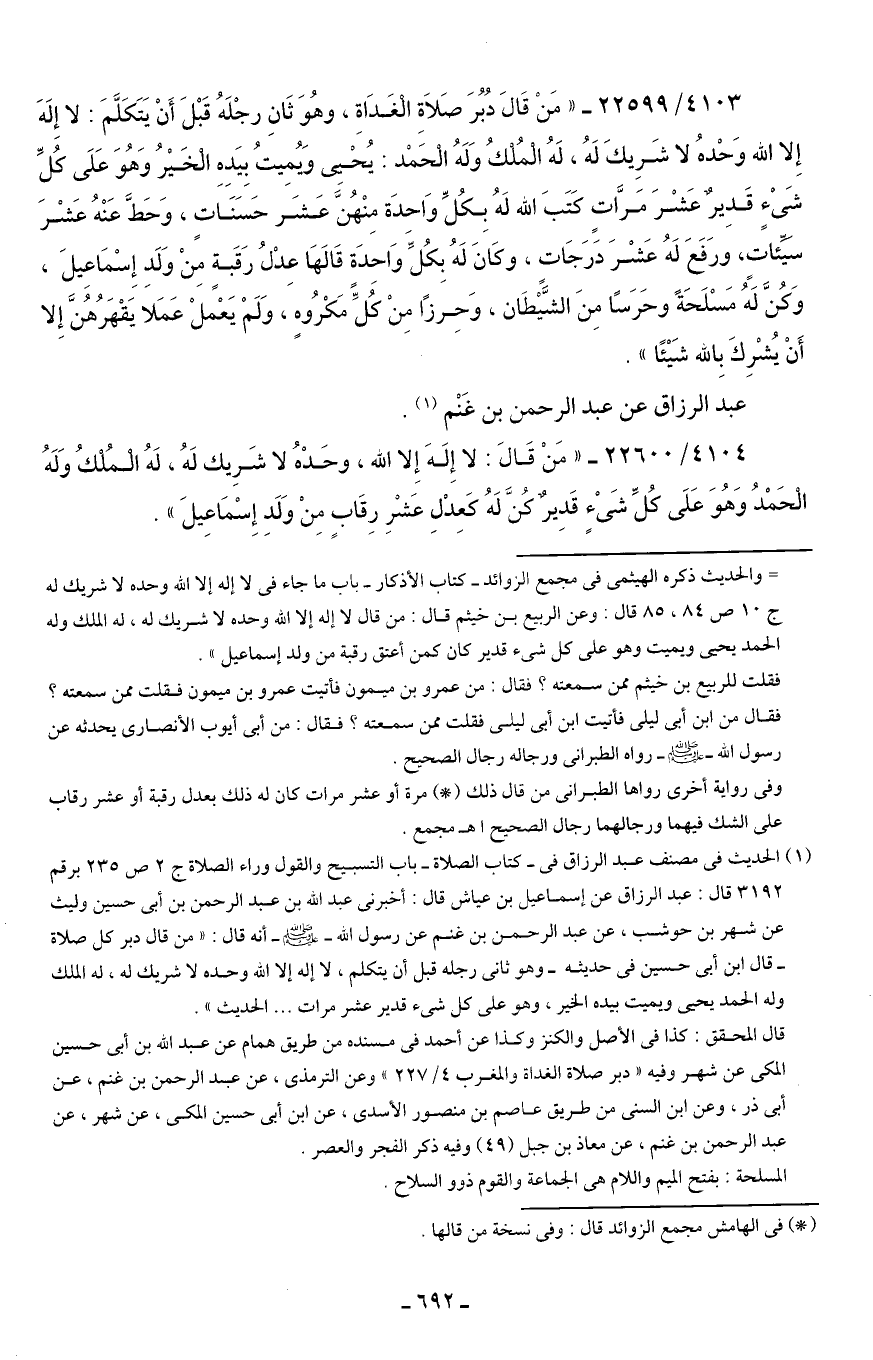 ٤١٠٣/ ٢٢٥٩٩ ـ « مَنْ قَالَ دُبُرَ صَلَاةِ الْغَـدَاةِ ، وهُوَ ثَانٍ رِجْلَهُ قَبْلَ أَنْ يَتَكَلَّمَ : لا إِلَهَ
إِلا الله وَحْدهُ لا شَـرِيكَ لَهُ ، لَهُ الْمُلْكُ وَلَهُ الْحَمْدُ : يُحْـيِى وَيُمِيتُ بِيَدِهِ الْخَيْرُ وَهُوَ عَلَى كُلِّ
شَىْءٍ قَـدِيرٌ عَشْـرَ مَـرَّاتٍ كَتَبَ الله لَهُ بِـكُلِّ وَاحِدَةٍ مِنْهُنَّ عَـشَـرَ حَسَنَـاتٍ ، وَحَطَّ عَنْهُ عَشْـرَ
سَيِّئَاتٍ، ورَفَعَ لَهُ عَشْـرَ دَرَجَاتٍ ، وكَانَ لَهُ بِكُلِّ وَاحِدَةٍ قَالَهَا عِدْلُ رَقَبَـةٍ مِنْ وَلَدِ إِسْمَاعِيلَ ،
وَكُنَّ لَهُ مَسْلَحَةً وحَرَسًا مِنَ الشَّيْطَانِ ، وَحِـرزًا مِنْ كُلِّ مَكْرُوهٍ ، ولَمْ يَعْمَلْ عَمَلًا يَقْهَرُهُنَّ إِلا
أَنْ يُشْرِكَ بِاللهِ شَيْئًا » .
عبد الرزاق عن عبد الرحمن بن غَنْم (١) .
٤١٠٤/ ٢٢٦٠٠ ـ « مَنْ قَـالَ : لا إِلَـهَ إِلا الله ، وحَـدْهُ لا شَـرِيكَ لَهُ ، لَهُ الْـمُلْكُ وَلَهُ
الْحَمْدُ وَهُوَ عَلَى كُلِّ شَىْءٍ قَدِيرٌ كُنَّ لَهُ كَعِدْلِ عَشْرِ رِقَابٍ مِنْ وَلَدِ إِسْمَاعِيلَ » .
= والحديث ذكره الهيثمى فى مجمع الزوائد ـ كتاب الأذكار ـ باب ما جاء فى لا إله إلا الله وحده لا شريك له
ج ١٠ ص ٨٤ ، ٨٥ قال : وعن الربيع بـن خيثم قـال : من قال لا إله إلا الله وحده لا شـريك له ، له الملك وله
الحمد يحيى ويميت وهو على كل شىء قدير كان كمن أعتق رقبة من ولد إسماعيل » .
فقلت للربيع بن خيثم ممن سـمعته ؟ فقال : من عمرو بن ميـمون فأتيت عمرو بن ميمون فـقلت ممن سمعته ؟
فقـال من ابن أبى ليلى فأتيت ابن أبى ليلـى فقلت ممن سـمعته ؟ فـقال : من أبى أيوب الأنصـارى يحدثه عن
رسول الله ـ ﷺ ـ رواه الطبرانى ورجاله رجال الصحيح .
وفى رواية أخرى رواها الطبـرانى من قال ذلك (*) مرة أو عشر مرات كان له ذلك بعدل رقبة أو عشر رقاب
على الشك فيهما ورجالهما رجال الصحيح ا هـ مجمع .
(١) الحديث فى مصنف عبـد الرزاق فى ـ كتاب الصلاة ـ باب التسبيح والقول وراء الصلاة ج ٢ ص ٢٣٥ برقم
٣١٩٢ قال : عبد الرزاق عن إسمـاعيل بن عياش قال : أخبرنى عبد الله بن عـبد الرحمن بن أبى حسين وليث
عن شـهر بن حوشـب ، عن عبد الرحـمـن بن غنـم عن رسول الله ـ ﷺ ـ أنه قال : « من قال دبر كل صلاة
ـ قال ابن أبى حـسين فى حديثـه ـ وهو ثانى رجله قبل أن يتكلم ، لا إله إلا الله وحـده لا شريك له ، له الملك
وله الحمد يحيى ويميت بيده الخير ، وهو على كل شىء قدير عشر مرات ... الحديث » .
قال المحـقق : كذا فى الأصل والكنز وكـذا عن أحمد فى مـسنده من طريق همام عن عـبد الله بن أبى حـسين
المكى عن شهـر وفيه « دبر صلاة الغداة والمغـرب ٤/ ٢٢٧ » وعن الترمذى ، عن عبـد الرحمن بن غنم ، عـن
أبى ذر ، وعن ابن السنى من طـريق عـاصم بن منصـور الأسدى ، عن ابن أبى حسين المكـى ، عن شهر ، عن
عبد الرحمن بن غنم ، عن معاذ بن جبل (٤٩) وفيه ذكر الفجر والعصر .
المسلحة : بفتح الميم واللام هى الجماعة والقوم ذوو السلاح .
(*) فى الهامش مجمع الزوائد قال : وفى نسخة من قالها .
ـ ٦٩٢ ـ